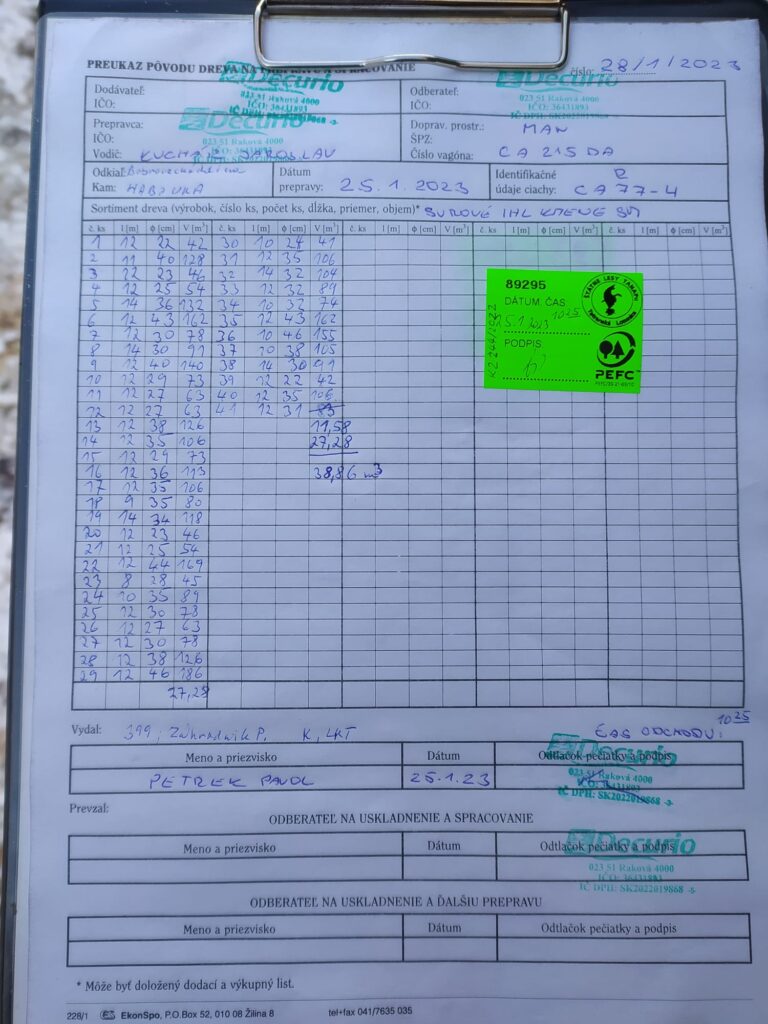 PREUKAZ PÔVODU DREVA NA PREPRAVU A SPRACOVANIE
číslo: 28/1/2023
Decurio
023 51 Raková 4000
IČO: 36431893
IČ DPH: SK2022019868
Decurio
023 51 Raková 4000
IČO: 36431893
IČ DPH: SK2022019868
Dodávateľ:
IČO:
Odberateľ:
IČO:
Decurio
023 51 Raková 4000
Prepravca:
IČO:
Vodič:
Doprav. prostr.: MAN
ŠPZ:
Číslo vagóna: CA 215 DA
Odkiaľ:
Kam: HABOVKA
Dátum prepravy: 25.1.2023
Identifikačné údaje ciachy: CA 77-4
Sortiment dreva (výrobok, číslo ks, počet ks, dĺžka, priemer, objem)* SUROVÉ IHL KMENE SM
č. ks l [m] ϕ [cm] V [m³] č. ks l [m] ϕ [cm] V [m³] č. ks l [m] ϕ [cm] V [m³] č. ks l [m] ϕ [cm] V [m³] č. ks l [m] ϕ [cm] V [m³]
1 12 22 42 30 10 24 41
2 11 40 128 31 12 35 106
3 22 23 46 32 14 32 104
4 12 25 54 33 12 32 89
5 14 36 132 34 10 32 74
6 12 43 162 35 12 43 162
7 12 30 78 36 10 46 155
8 14 30 91 37 10 38 105
9 12 40 140 38 14 30 91
10 12 29 73 39 12 22 42
11 12 27 63 40 12 35 106
12 12 27 63 41 12 31 83
13 12 38 126 11,58
14 12 35 106 27,28
15 12 29 73
16 12 36 113 38,86 m³
17 12 35 106
18 9 35 80
19 14 34 118
20 12 23 46
21 12 25 54
22 12 44 169
23 8 28 45
24 10 35 89
25 12 30 78
26 12 27 63
27 12 30 78
28 12 38 126
29 12 46 186
27,28
89295
DÁTUM. ČAS
25.1.2023 10 25
PODPIS
ŠTÁTNE LESY TANAPu
Tatranská Lomnica
PEFC
Vydal: 399, Záhradník P, K, LKT
ČAS ODCHODU: 10 25
Meno a priezvisko Dátum Odtlačok pečiatky a podpis
PETREK PAVOL 25.1.23
Decurio
023 51 Raková 4000
IČO: 36431893
IČ DPH: SK2022019868 -3
Prevzal:
ODBERATEĽ NA USKLADNENIE A SPRACOVANIE
Meno a priezvisko Dátum Odtlačok pečiatky a podpis
Decurio
023 51 Raková 4000
IČO: 36431893
IČ DPH: SK2022019868 -5
ODBERATEĽ NA USKLADNENIE A ĎALŠIU PREPRAVU
Meno a priezvisko Dátum Odtlačok pečiatky a podpis
* Môže byť doložený dodací a výkupný list.
228/1 EkonSpo, P.O.Box 52, 010 08 Žilina 8 tel+fax 041/7635 035